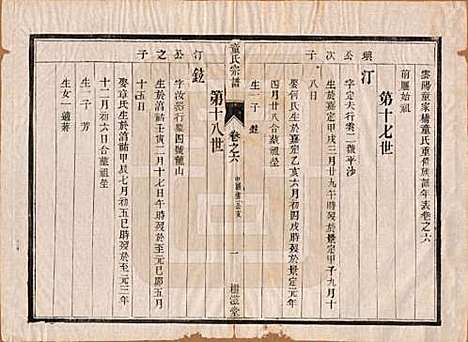 雲陽童家橋童氏重修族譜年表卷之六
前屬始祖
第十七世
瑱公次子
汀
字定夫行雲二號平沙
生於嘉定甲戌三月廿九午時歿於景定甲子九月十
八日
娶何氏生於嘉定乙亥六月初四戌時歿於景定元年
四月廿八合葬祖塋
生一子 鉉
童氏宗譜
卷之六
一
樹滋堂
第十八世
汀公之子
鉉
字汝器行榮四號龍山
生於淳祐壬寅二月十七日午時歿於至元己卯五月
十五日
娶章氏生於淳祐甲辰七月初五巳時歿於至元三年
十二月初六日合葬祖塋
生一子 芳
生女一適著